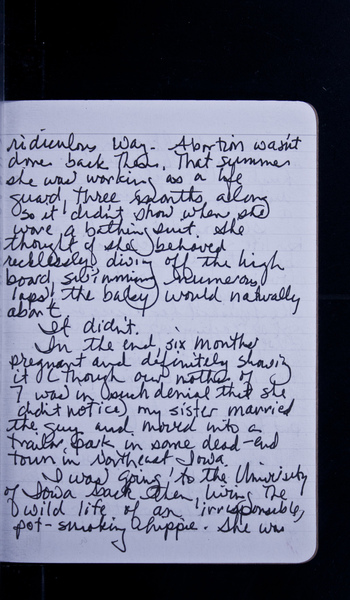 ridiculous way. Abortion wasn't
done back then. That summer
she was working as a life
guard, three months along
so it didn't show when she
wore a bathing suit. She
thought if she behaved
recklessly, diving off the high
board, swimming numerous
laps, the baby would naturally
abort.
It didn't.
In the end, six months
pregnant and definitely showing
it (though our mother of
7 was in such denial that she
didn't notice) my sister married
the guy and moved into a
trailer park in some dead-end
town in Northeast Iowa.
I was going to the University
of Iowa back then, living the
wild life of an irresponsible,
pot-smoking hippie. She was